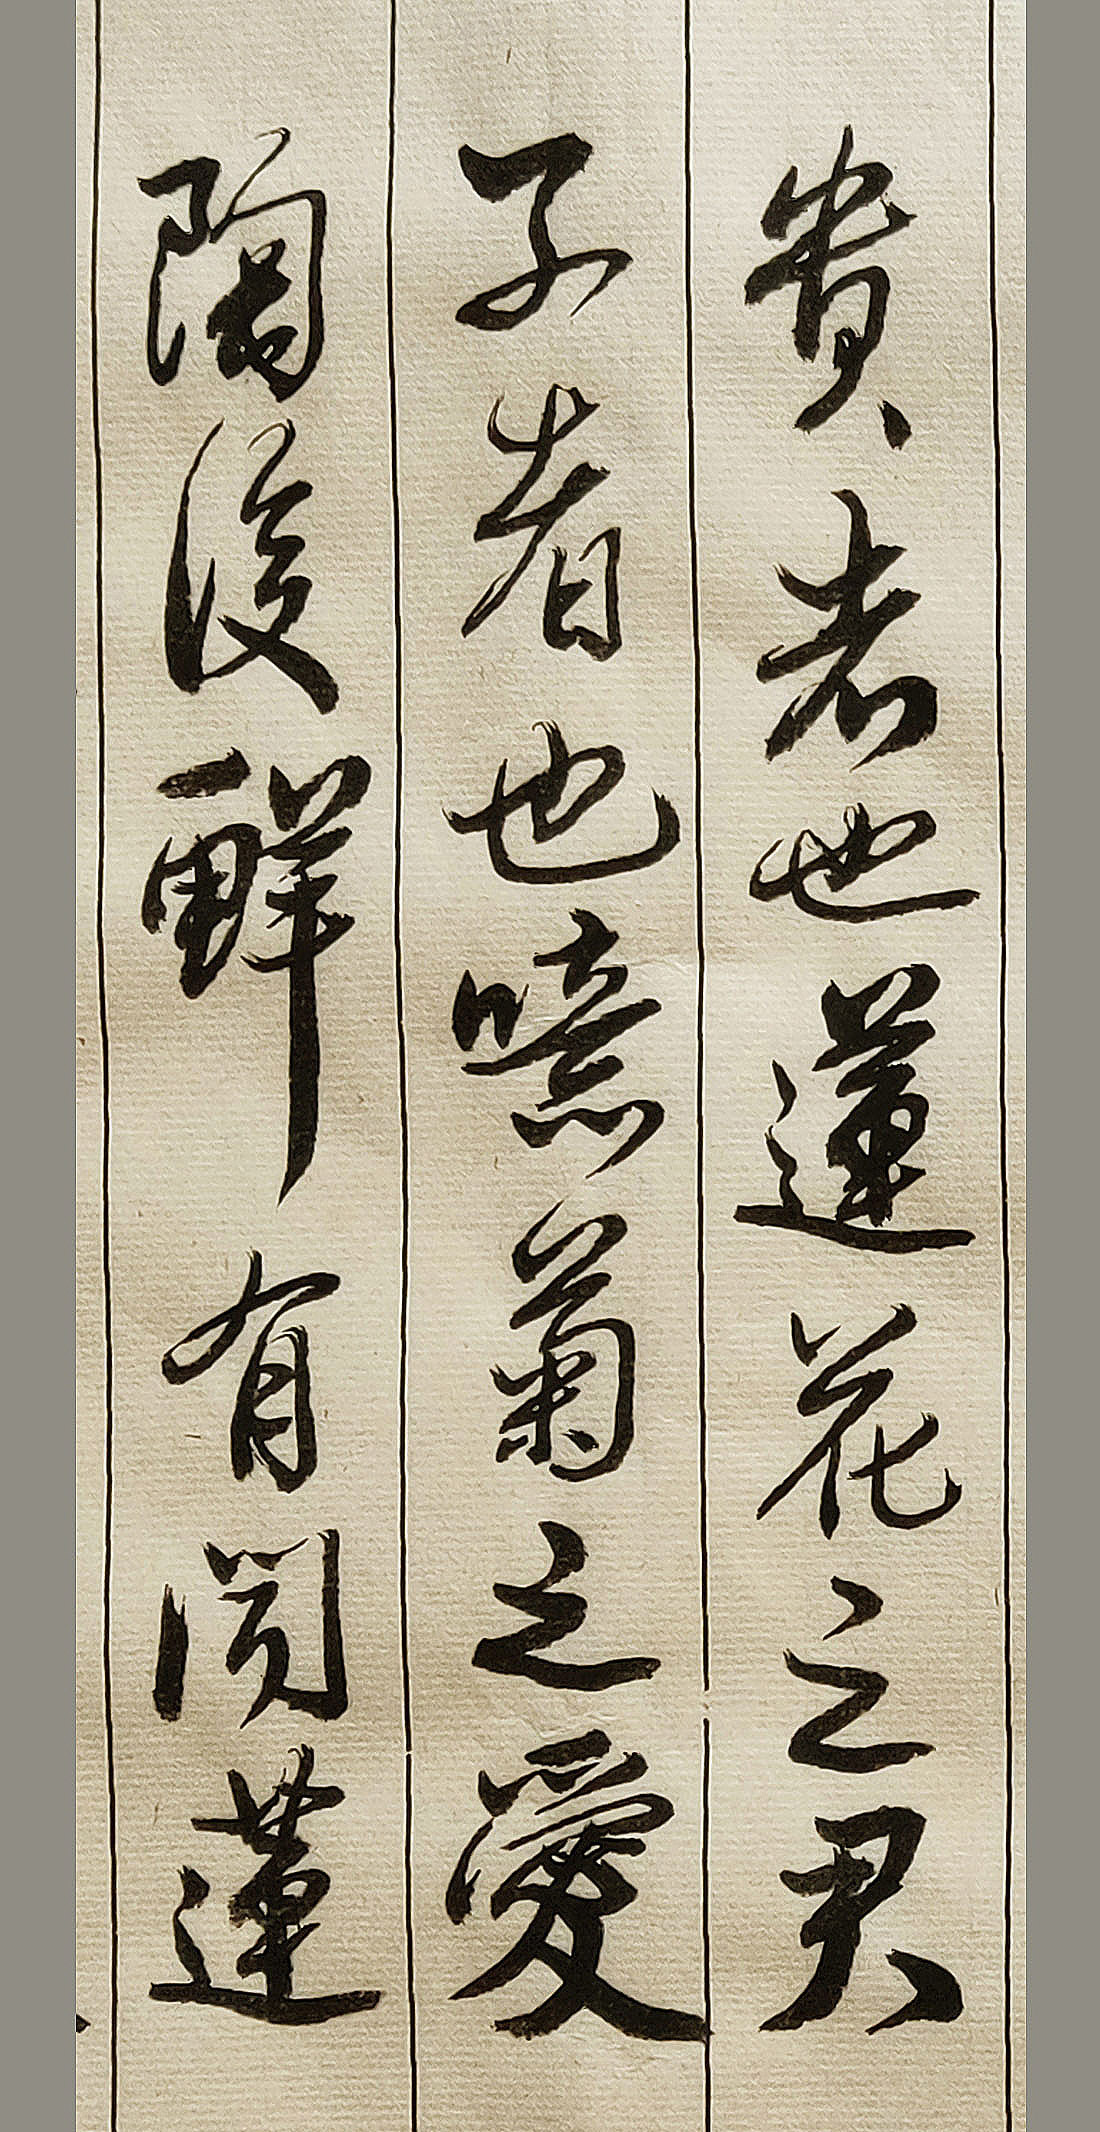 貴者也蓮花之君
子者也噫菊之愛
陶後鮮有聞蓮